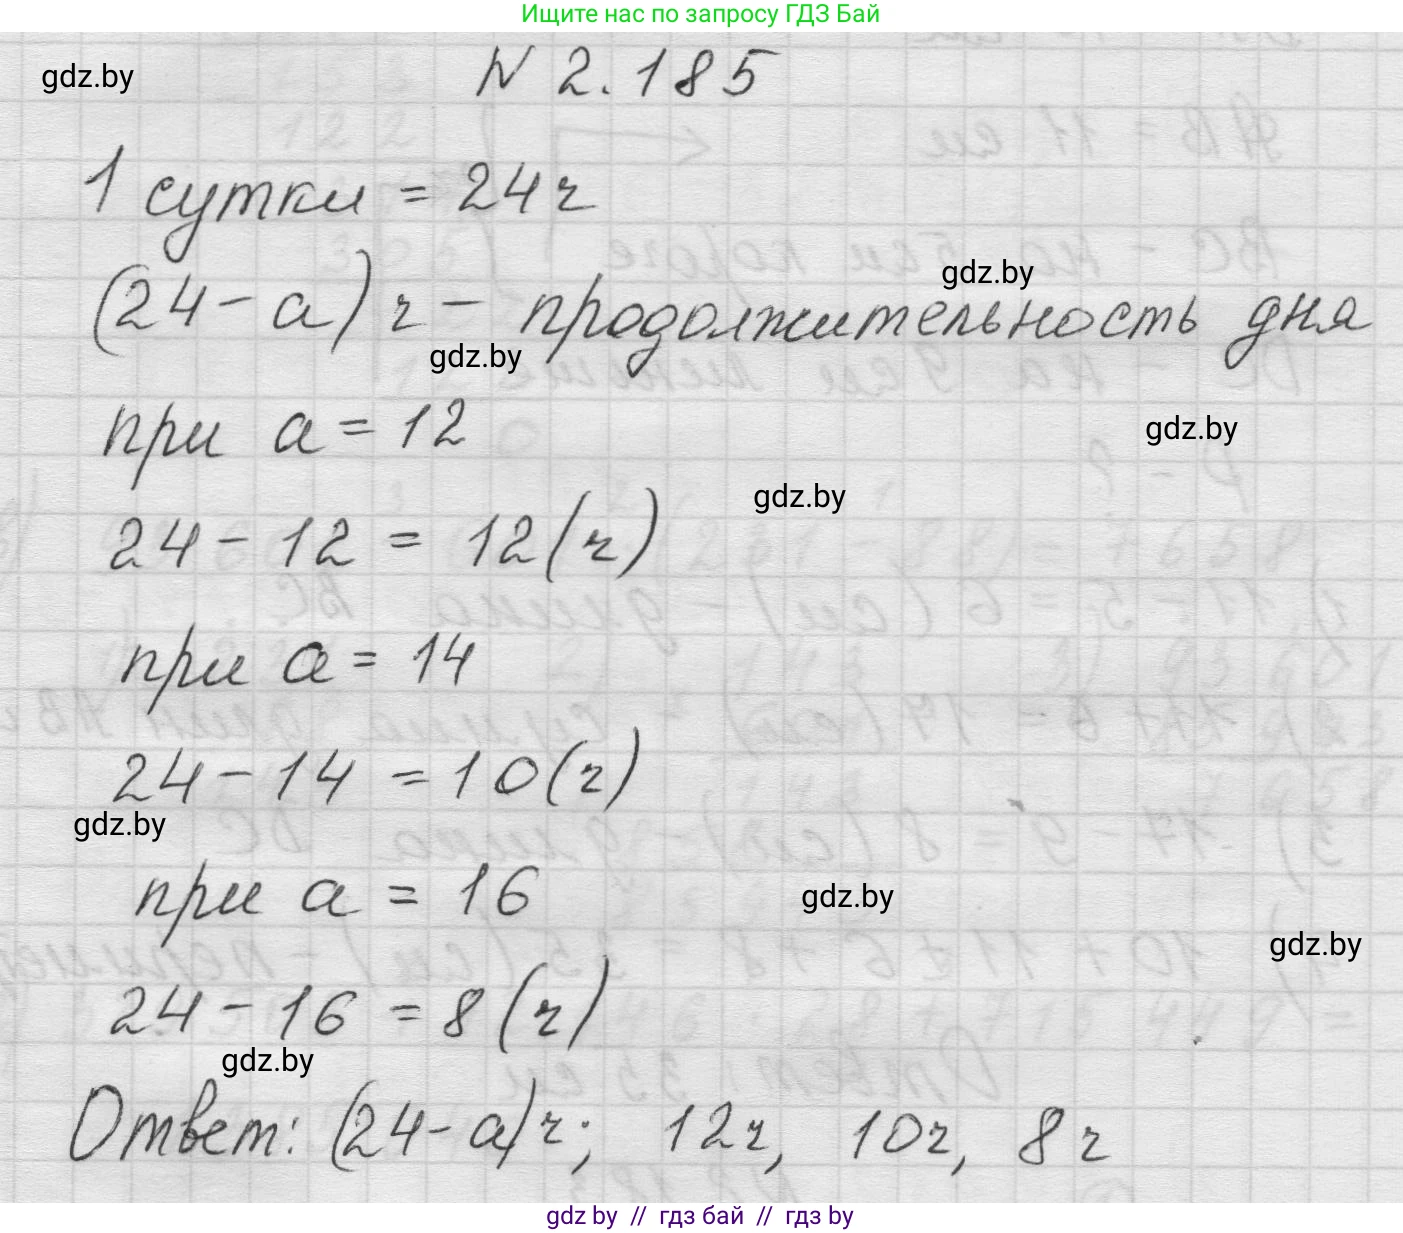 Ищите нас по запросу ГДЗ Бай
gdz.by
N 2.185
1 сутки = 24 ч
gdz.by
(24 - а) ч - продолжительность дня
gdz.by
при а = 12
gdz.by
gdz.by
24 - 12 = 12 (ч)
при а = 14
24 - 14 = 10 (ч)
gdz.by
при а = 16
gdz.by
gdz.by
24 - 16 = 8 (ч)
gdz.by
Ответ: (24 - а) ч; 12 ч, 10 ч, 8 ч
gdz by // гдз бай // гдз by